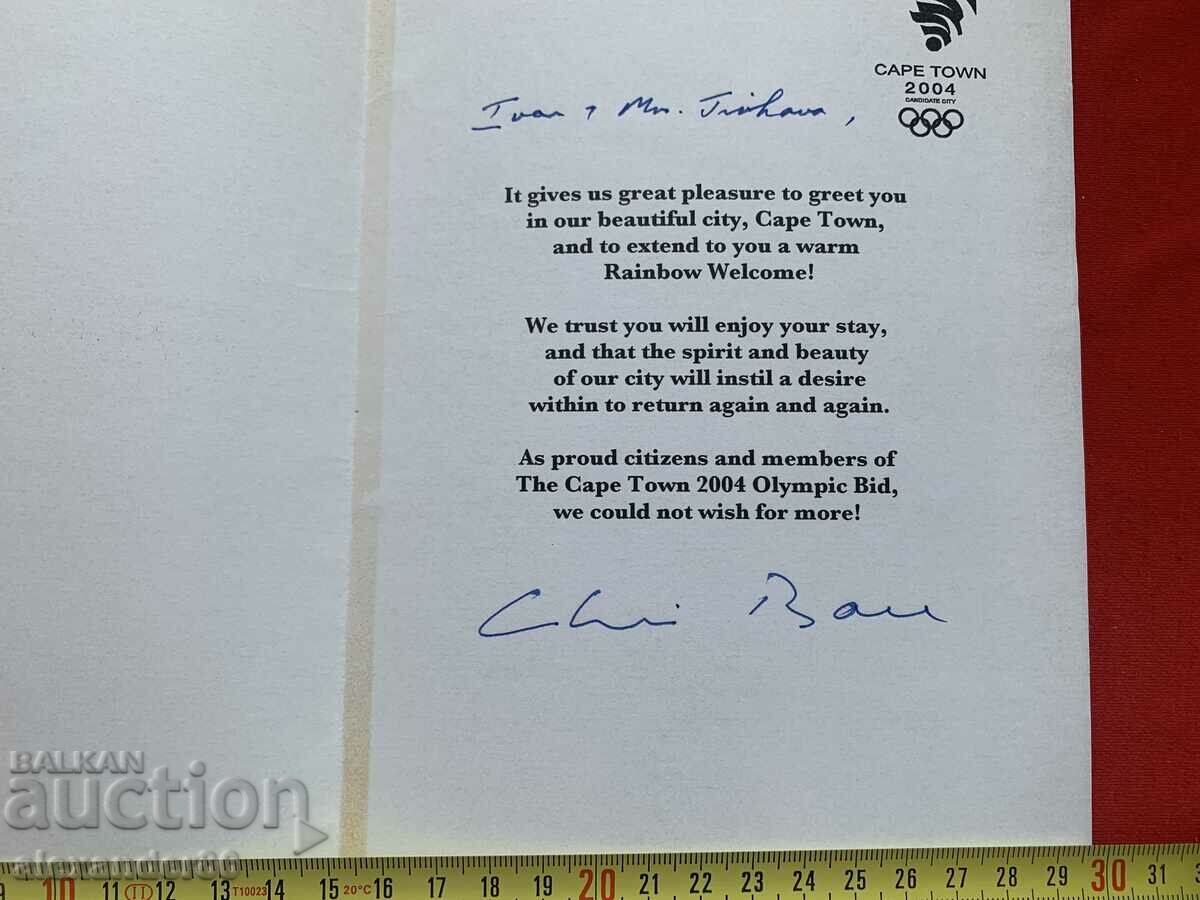 CAPE TOWN
2004
CANDIDATE CITY
Ivan + Mrs.
It gives us great pleasure to greet you
in our beautiful city, Cape Town,
and to extend to you a warm
Rainbow Welcome!
We trust you will enjoy your stay,
and that the spirit and beauty
of our city will instil a desire
within to return again and again.
As proud citizens and members of
The Cape Town 2004 Olympic Bid,
we could not wish for more!
Chris Ball
BALKAN
auction
alexander86
9 10 11 II 12 13 T10023 14 15 20°C 16 17 18 19 20 21 22 23 24 25 26 27 28 29 30 31